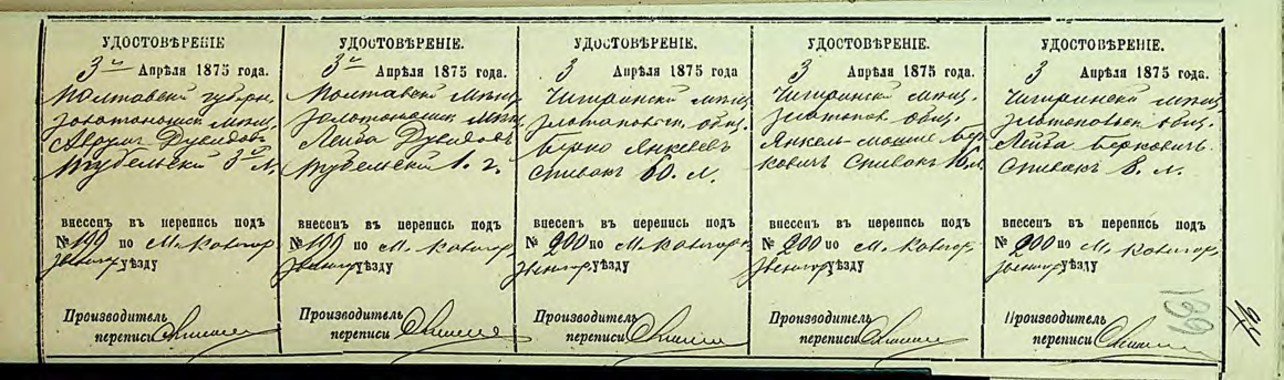 УДОСТОВѢРЕНІЕ
3го Апрѣля 1875 года.
Полтавской губерн.
золотоношск мѣщ.
Аврум Дувидовъ
3 л.
внесенъ въ перепись подъ
№ 199 по М. Катигор.
звениг уѣзду
Производитель
переписи
УДОСТОВѢРЕНІЕ.
3го Апрѣля 1875 года.
Полтавской
золотоношск мѣщ
Лейба Дувидовъ
1. г.
внесенъ въ перепись подъ
№ 199 по М. Катигор.
звениг уѣзду
Производитель
переписи
УДОСТОВѢРЕНІЕ.
3 Апрѣля 1875 года
Чигиринскій мѣщ
златоповск. общ.
Берко Янкелев
Спивакъ 60. л.
внесенъ въ перепись подъ
№ 200 по М. Катигор
звениг уѣзду
Производитель
переписи
УДОСТОВѢРЕНІЕ.
3 Апрѣля 1875 года.
Чигиринскій мѣщ.
златопов. общ.
Янкель-мошко Бер
ковичъ Спивакъ л.
внесенъ въ перепись подъ
№ 200 по М. Катигор,
Звениг уѣзду
Производитель
переписи
УДОСТОВѢРЕНІЕ.
3 Апрѣля 1875 года.
Чигиринскій мѣщ
златоповск общ.
Лейба Берковичъ
Спивакъ 8. л.
внесенъ въ перепись подъ
№ 200 по М. Катигор,
звениг уѣзду
Производитель
переписи
199